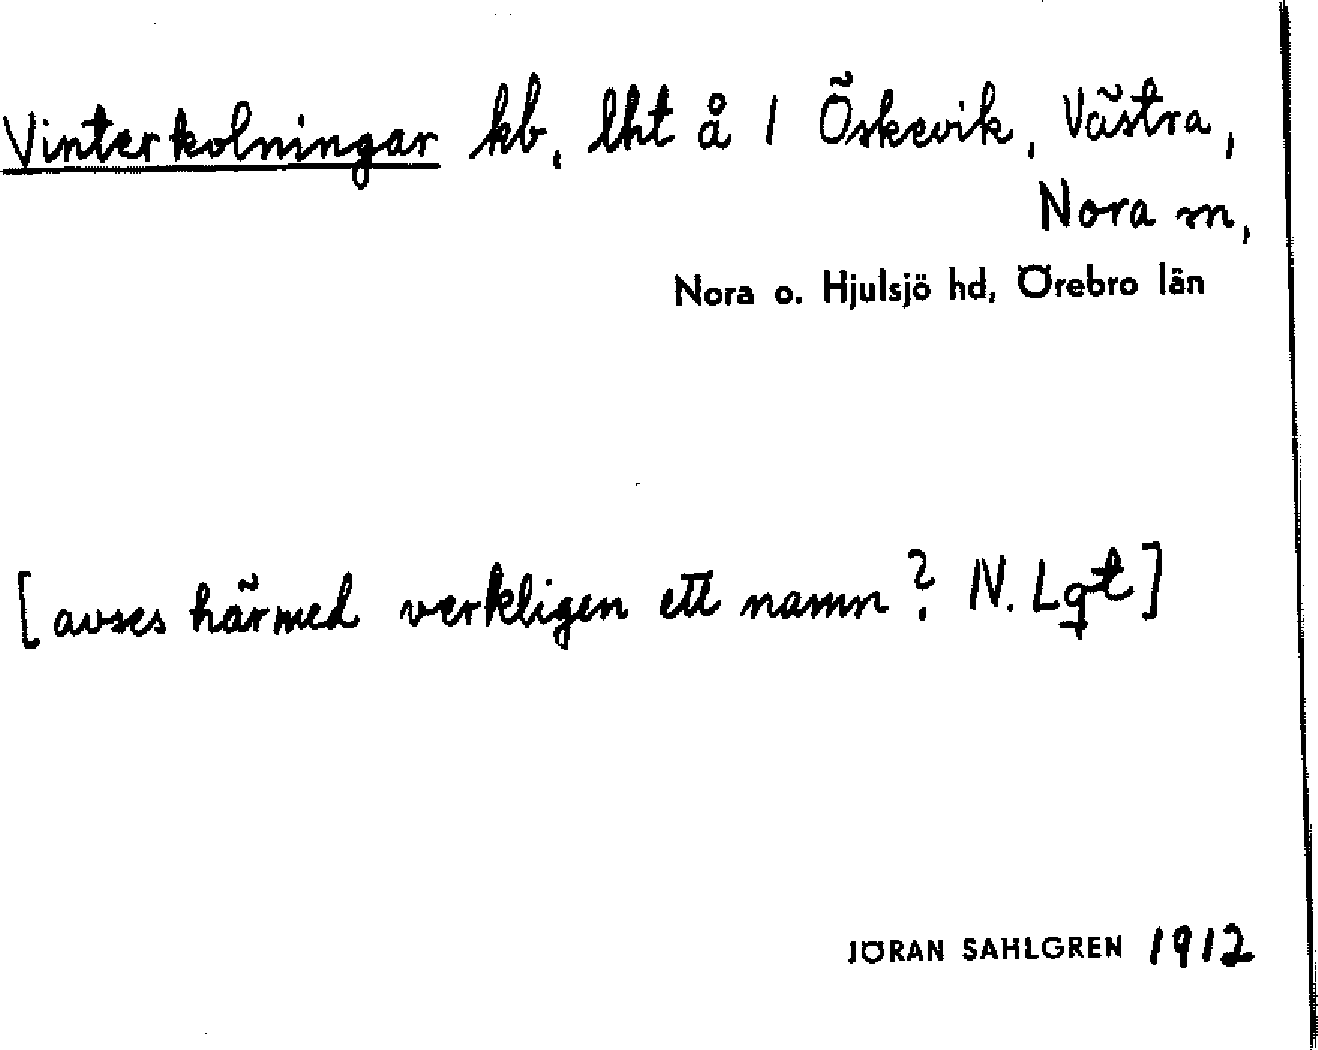 Vinterkolningar kb, lht å 1 Öskevik, Västra,
Nora m,
Nora o. Hjulsjö hd, Örebro län
[avses härmed verkligen ett namn? N. Lqt]
JÖRAN SAHLGREN 1912